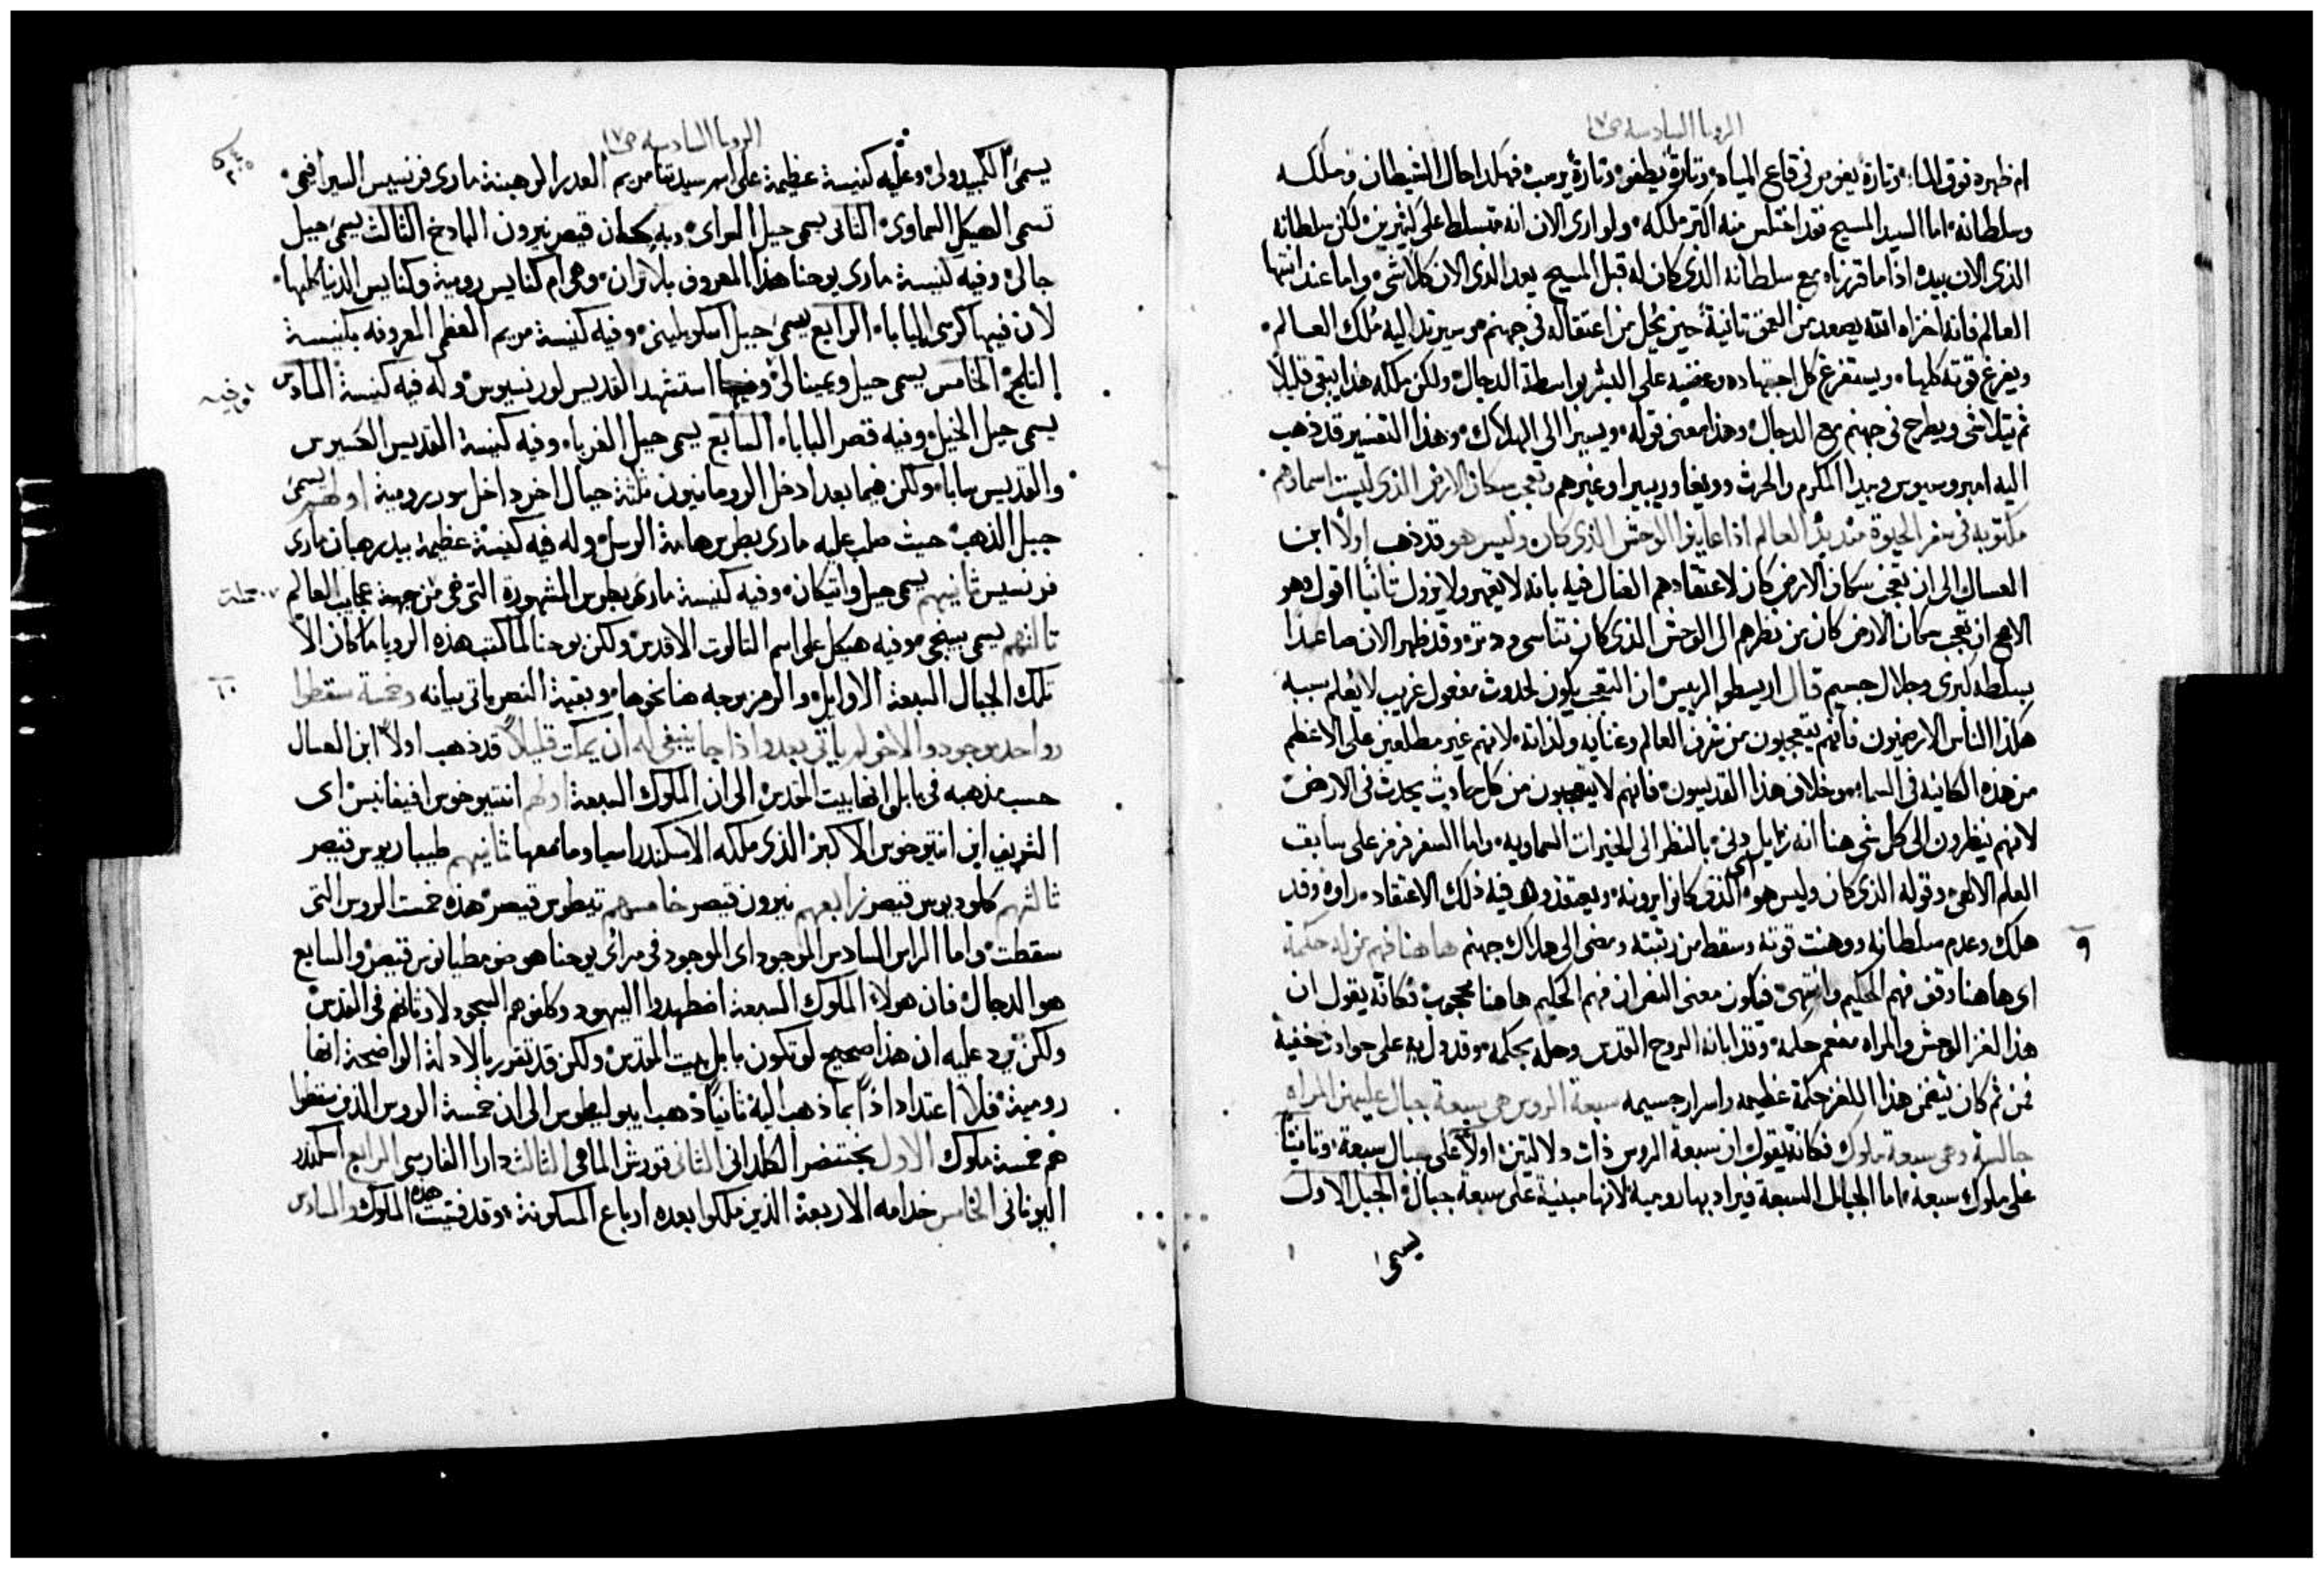 الرويا السادسة ص١٧
ام ظهره فوق الماء وتارة يغوص في قاع المياه وتارة يطفو وتارة يرسب فهكذا حال الشيطان وملكه
وسلطانه اما السيد المسيح فقد اختلس منه اكثر ملكه ولو ارى الان انه متسلط على كثيرين لكن سلطانه
الذي الان بيده اذا ما قرناه مع سلطانه الذي كان له قبل المسيح يعد الذي الان كلا شي واما عند انتها
العالم فانه اخزاه الله يصعد من العمق ثانية حين يحل من اعتقاله في جهنم وسيرتد اليه ملك العالم
ويفرغ قوته كلها ويستفرغ كل اجتهاده وغضبه على البشر بواسطة الدجال ولكن ملكه هذا يبقى قليلا
ثم يتلاشى ويطرح في جهنم مع الدجال وهذا معنى قوله ويسير الى الهلاك وهذا التفسير قد ذهب
اليه امبروسيوس وبيدا المكرم والحرث وويغا وريبيرا وغيرهم وتعجب سكان الارض الذي ليست اسماوهم
مكتوبه في سفر الحيوة منذ بدء العالم اذا عاينوا الوحش الذي كان وليس هو قد ذهب اولا ابن
العسال الى ان تعجب سكان الارض كان لاعتقادهم الضال فيه بانه لا يقهر ولا يزول ثانيا اقول وهو
الاصح ان تعجب سكان الارض كان من نظرهم الى الوحش الذي كان تناسى ودثر وقد ظهر الان صاعدا
بسلطه كبرى وجلال جسيم قال اريسطو الرييس ان التعجب يكون لحدوث مفعول غريب لا يعلم سببه
هكذا الناس الارضيون فانهم يتعجبون من شرف العالم وغنايه ولذاته لانهم غير مطلعين على الاعظم
من هذه الكاينه في السماء وخلاف هذا القديسون فانهم لا يتعجبون من كل حادث يحدث في الارض
لانهم ينظرون الى كل شي هنا انه زايل دني بالنظر الى الخيرات السماويه واما السفر فرمز على سابق
العلم الالهي وقوله الذي كان وليس هو اي الذي كانوا يرونه ويعتقدوا فيه ذلك الاعتقاد راوه وقد
هلك وعدم سلطانه ووهنت قوته وسقط من رتبته ومضى الى هلاك جهنم ها هنا فهم من له حكمة
٩
اي ها هنا وقف فهم الحكيم وانتهى فيكون معنى النص ان فهم الحكيم ها هنا محجوب فكانه يقول ان
هذا لغز الوحش والمراه مفعم حكمة وقد ابانه الروح القدس وحله بحكمه وقد دل به على حوادث خفية
فمن ثم كان يتضمن هذا اللغز حكمة عظيمه واسرار جسيمه سبعة الروس هي سبعة جبال عليهن المراه
جالسة وهي سبعة ملوك فكانه يقول ان سبعة الروس ذات دلالتين اولا على جبال سبعة وثانيا
على ملوك سبعة اما الجبال السبعة فيراد بها رومية لانها مبنية على سبعة جبال الجبل الاول
يسمى
الرويا السادسة ص١٧
يسمى الكبيدولي وعليه كنيسة عظيمة على اسم سيدتنا مريم العدرا لرهبنة ماري فرنسيس السيرافمي
تسمى الهيكل السماوي الثاني يسمى جبل المراي وبه كان قيصر نيرون المادخ الثالث يسمى جبل
جالي وفيه كنيسة ماري يوحنا هذا المعروف بلاتران وهي ام كنايس رومية وكنايس الدنيا كلها
لان فيها كرسي البابا الرابع يسمى جبل اسكويليني وفيه كنيسة مريم العظمى المعروفه بكنيسة
الثلج الخامس يسمى جبل ويمينالي وفيه استشهد القديس لورنسيوس وله فيه كنيسة السادس
يسمى جبل الخيل وفيه قصر البابا السابع يسمى جبل الغربا وفيه كنيسة القديس الكسيوس
والقديس سابا ولكن فيما بعد ادخل الرومانيون ثلثة جبال اخر داخل سور رومية اولهم يسمى
جبل الذهب حيث صلب عليه ماري بطرس هامة الرسل وله فيه كنيسة عظيمة بيد رهبان ماري
فرنسيس ثانيهم يسمى جبل واتيكان وفيه كنيسة ماري بطرس المشهورة التي هي من جهة عجايب العالم
ثالثهم يسمى بينجي وفيه هيكل على اسم الثالوت الاقدس ولكن يوحنا لما كتب هذه الرويا ما كان الا
تلك الجبال السبعة الاوايل والرمز يوجه هنا نحوها وبقية النص ياتي بيانه وخمسة سقطوا
١٠
وواحد موجود والاخر لم ياتي بعد واذا جا ينبغي له ان يمكث قليلا قد ذهب اولا ابن العسال
حسب مذهبه في بابل انها بيت المقدس الى ان الملوك السبعة اولهم انتيوخوس افيفانيس اي
الشريف ابن انتيوخوس الاكبر الذي ملكه الاسكندر اسيا وما معها ثانيهم طيباريوس قيصر
ثالثهم كلوديوس قيصر رابعهم نيرون قيصر خامسهم تيطوس قيصر هذه خمست الروس التي
سقطت واما الراس السادس الموجود اي الموجود في مراي يوحنا هو ضومطيانوس قيصر والسابع
هو الدجال فان هولاء الملوك السبعة اضطهدوا اليهود وكلفوهم السجود لاوثانهم في القدس
ولكن يرد عليه ان هذا صحيح لو تكون بابل بيت المقدس ولكن قد تقرر بالادلة الواضحة انها
رومية فلا اعتداد اذا بما ذهب اليه ثانيا ذهب ايبوليطوس الى ان خمسة الروس الذين سقطوا
هم خمسة ملوك الاول بختنصر الكلداني الثاني قورش الماهي الثالث دارا الفارسي الرابع اسكندر
اليوناني الخامس خدامه الاربعة الذين ملكوا بعده ارباع المسكونة وقد فنيت هذه الملوك والسادس